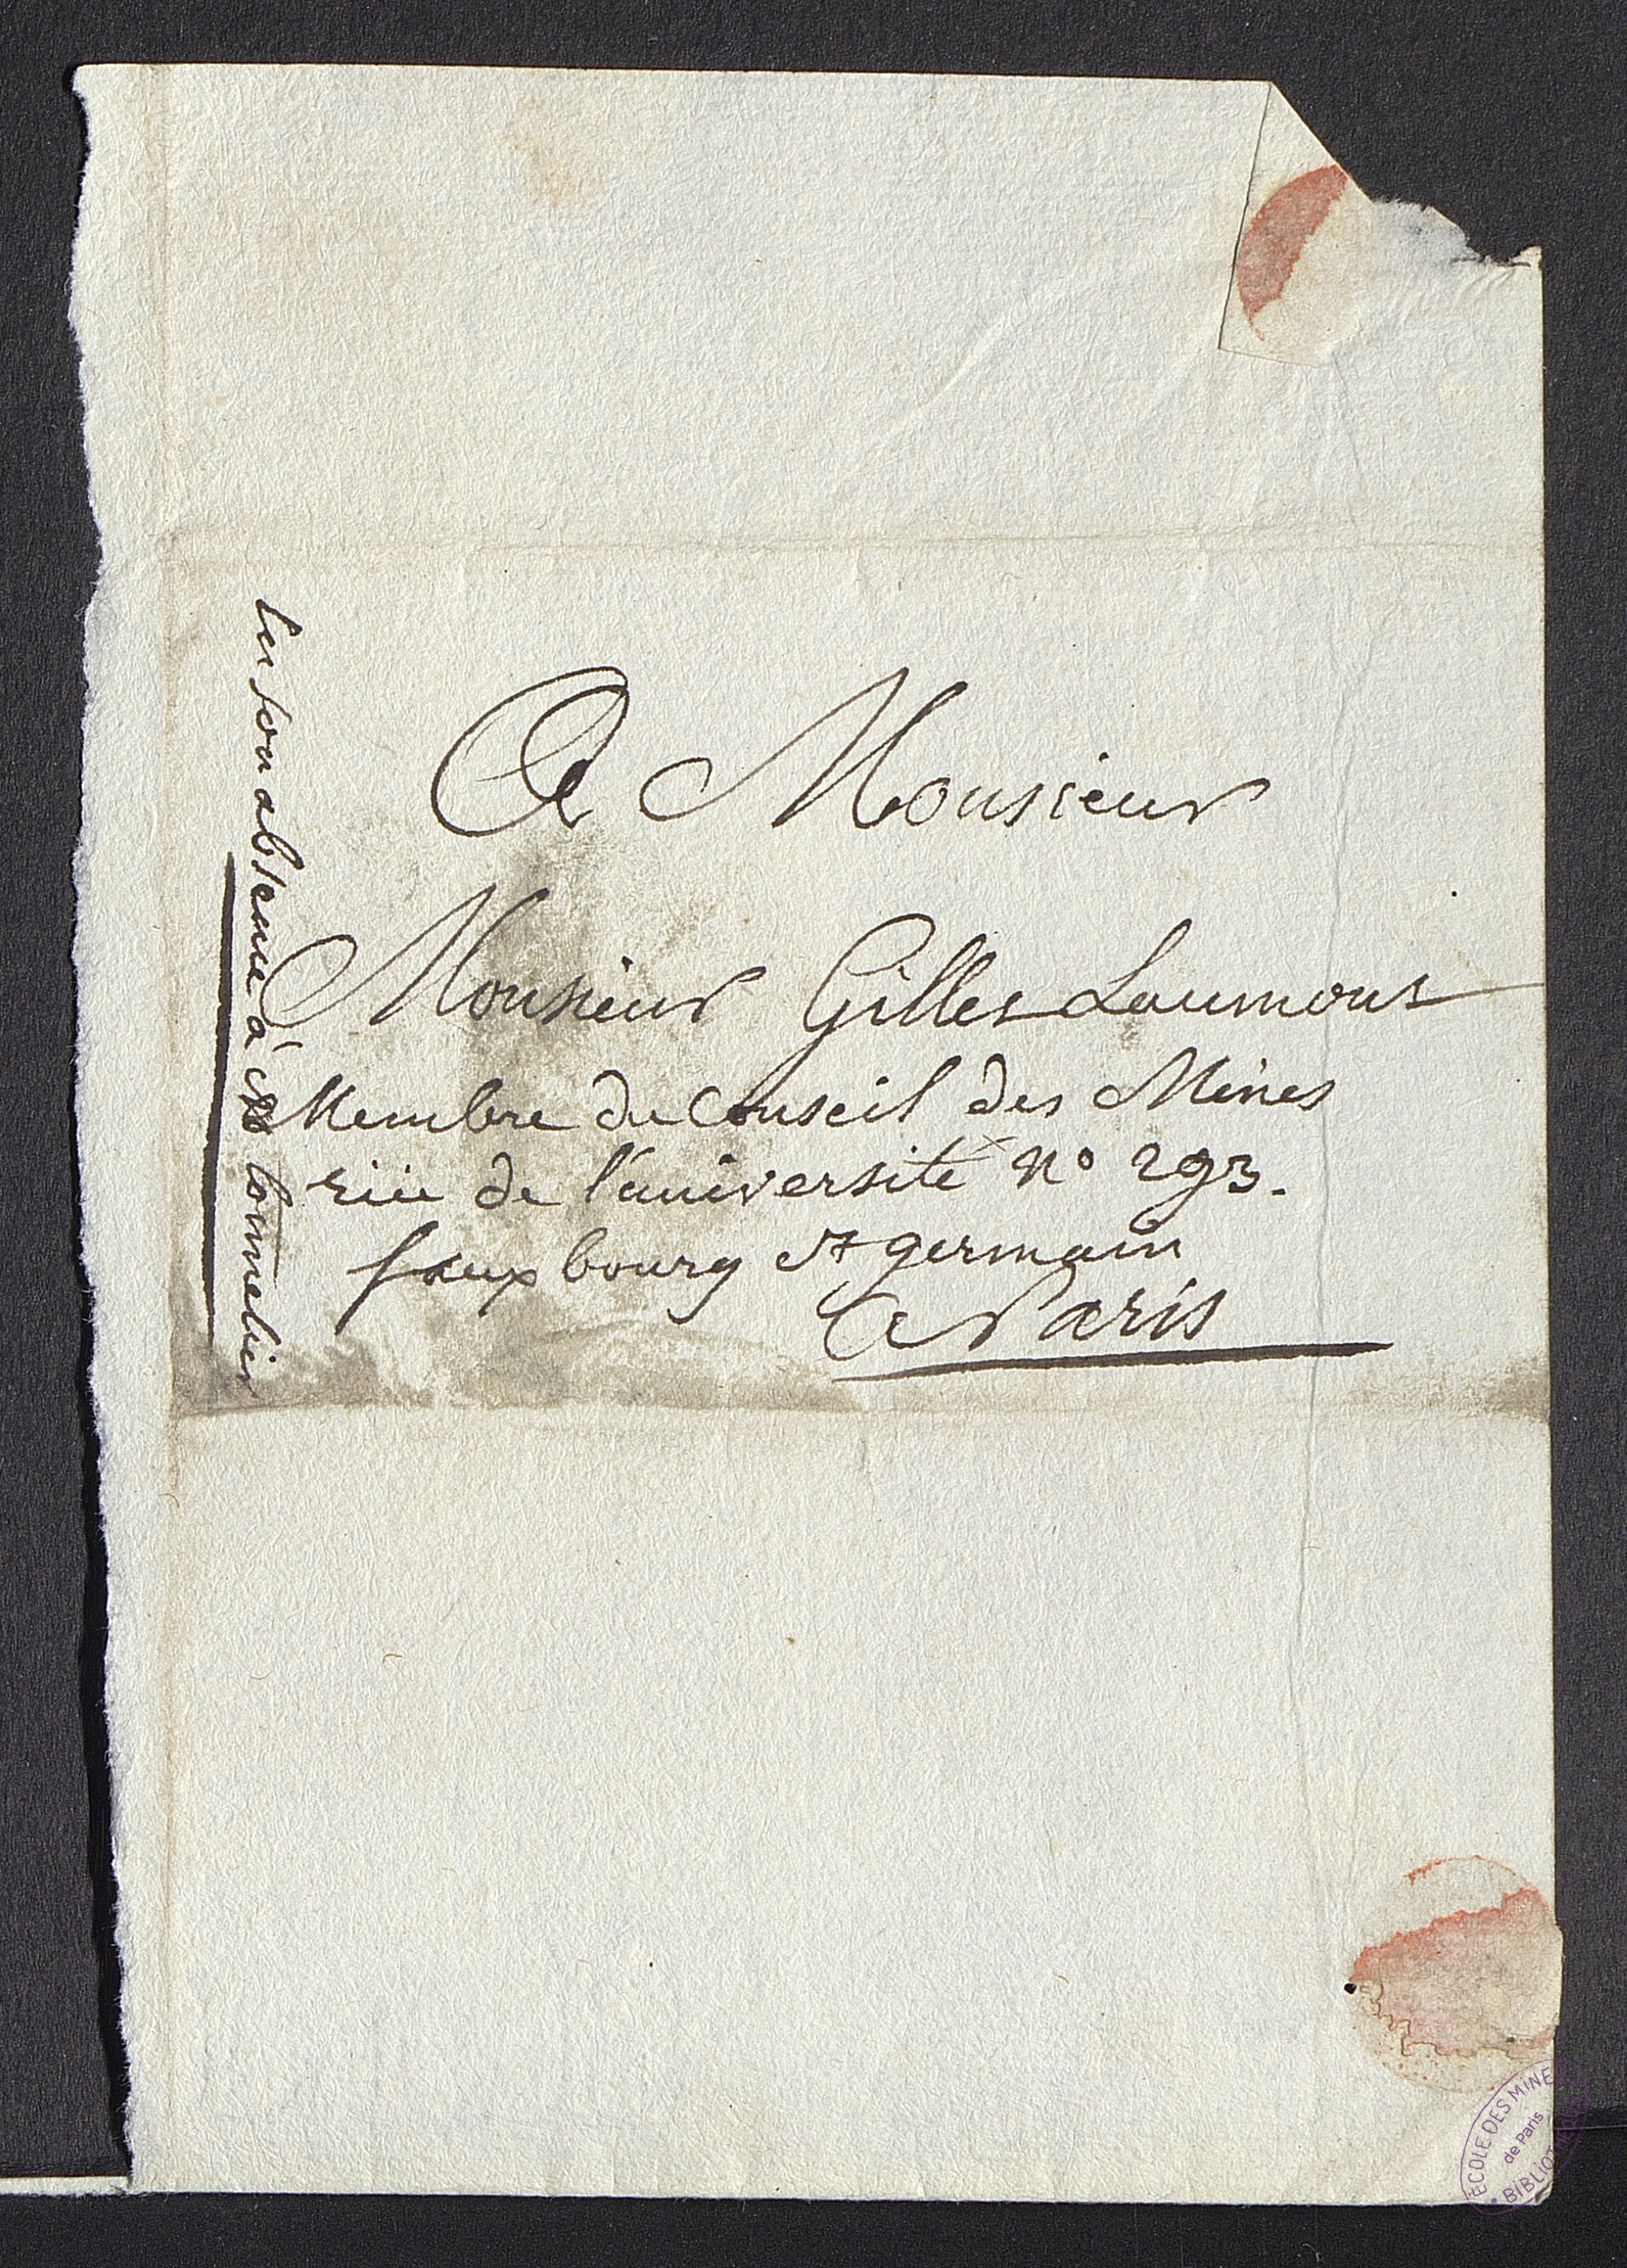 A Monsieur
Monsieur Gilles Laumont
Membre du Conseil des Mines
rüe de l'université N° 293.
fauxbourg St germain
A Paris
En son absence à Mr tonnelier
ECOLE DES MINE
de Paris
BIBLIOT